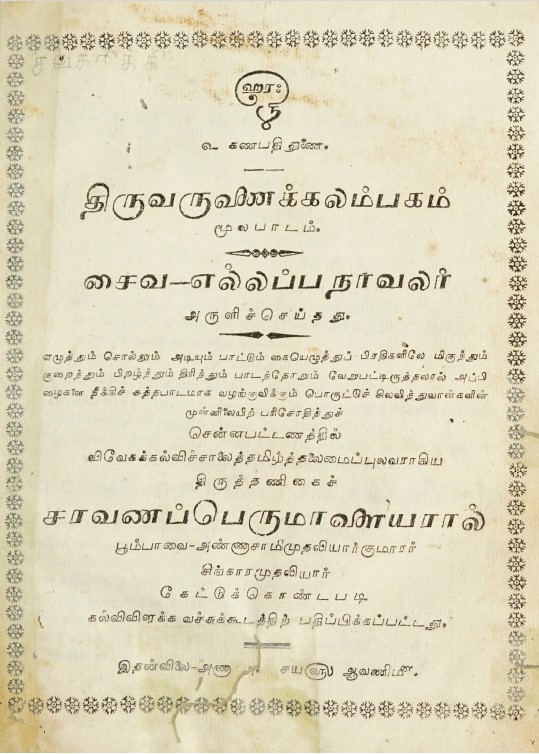 ஹரः
உ கணபதிதுணை.
திருவருணைக்கலம்பகம்
மூலபாடம்.
சைவ—எல்லப்பநாவலர்
அருளிச்செய்தது.
எழுத்தும் சொல்லும் அடியும் பாட்டும் கையெழுத்துப் பிரதிகளிலே மிகுந்தும்
குறைந்தும் பிறழ்ந்தும் திரிந்தும் பாடந்தோறும் வேறுபட்டிருத்தலால் அப்பி
ழைகளை நீக்கிச் சுத்தபாடமாக வழங்குவிக்கும் பொருட்டுச் சிலவித்துவான்களின்
முன்னிலையிற் பரிசோதித்துச்
சென்னபட்டணத்தில்
விவேகக்கல்விச்சாலைத்தமிழ்த்தலைமைப்புலவராகிய
திருத்தணிகைச்
சரவணப்பெருமாளையரால்
பூம்பாவை—அண்ணாசாமிமுதலியார்குமாரர்
சிங்காரமுதலியார்
கேட்டுக்கொண்டபடி
கல்விவிளக்க வச்சுக்கூடத்திற் பதிப்பிக்கப்பட்டது.
இதன்விலை—அணா ஆவணி